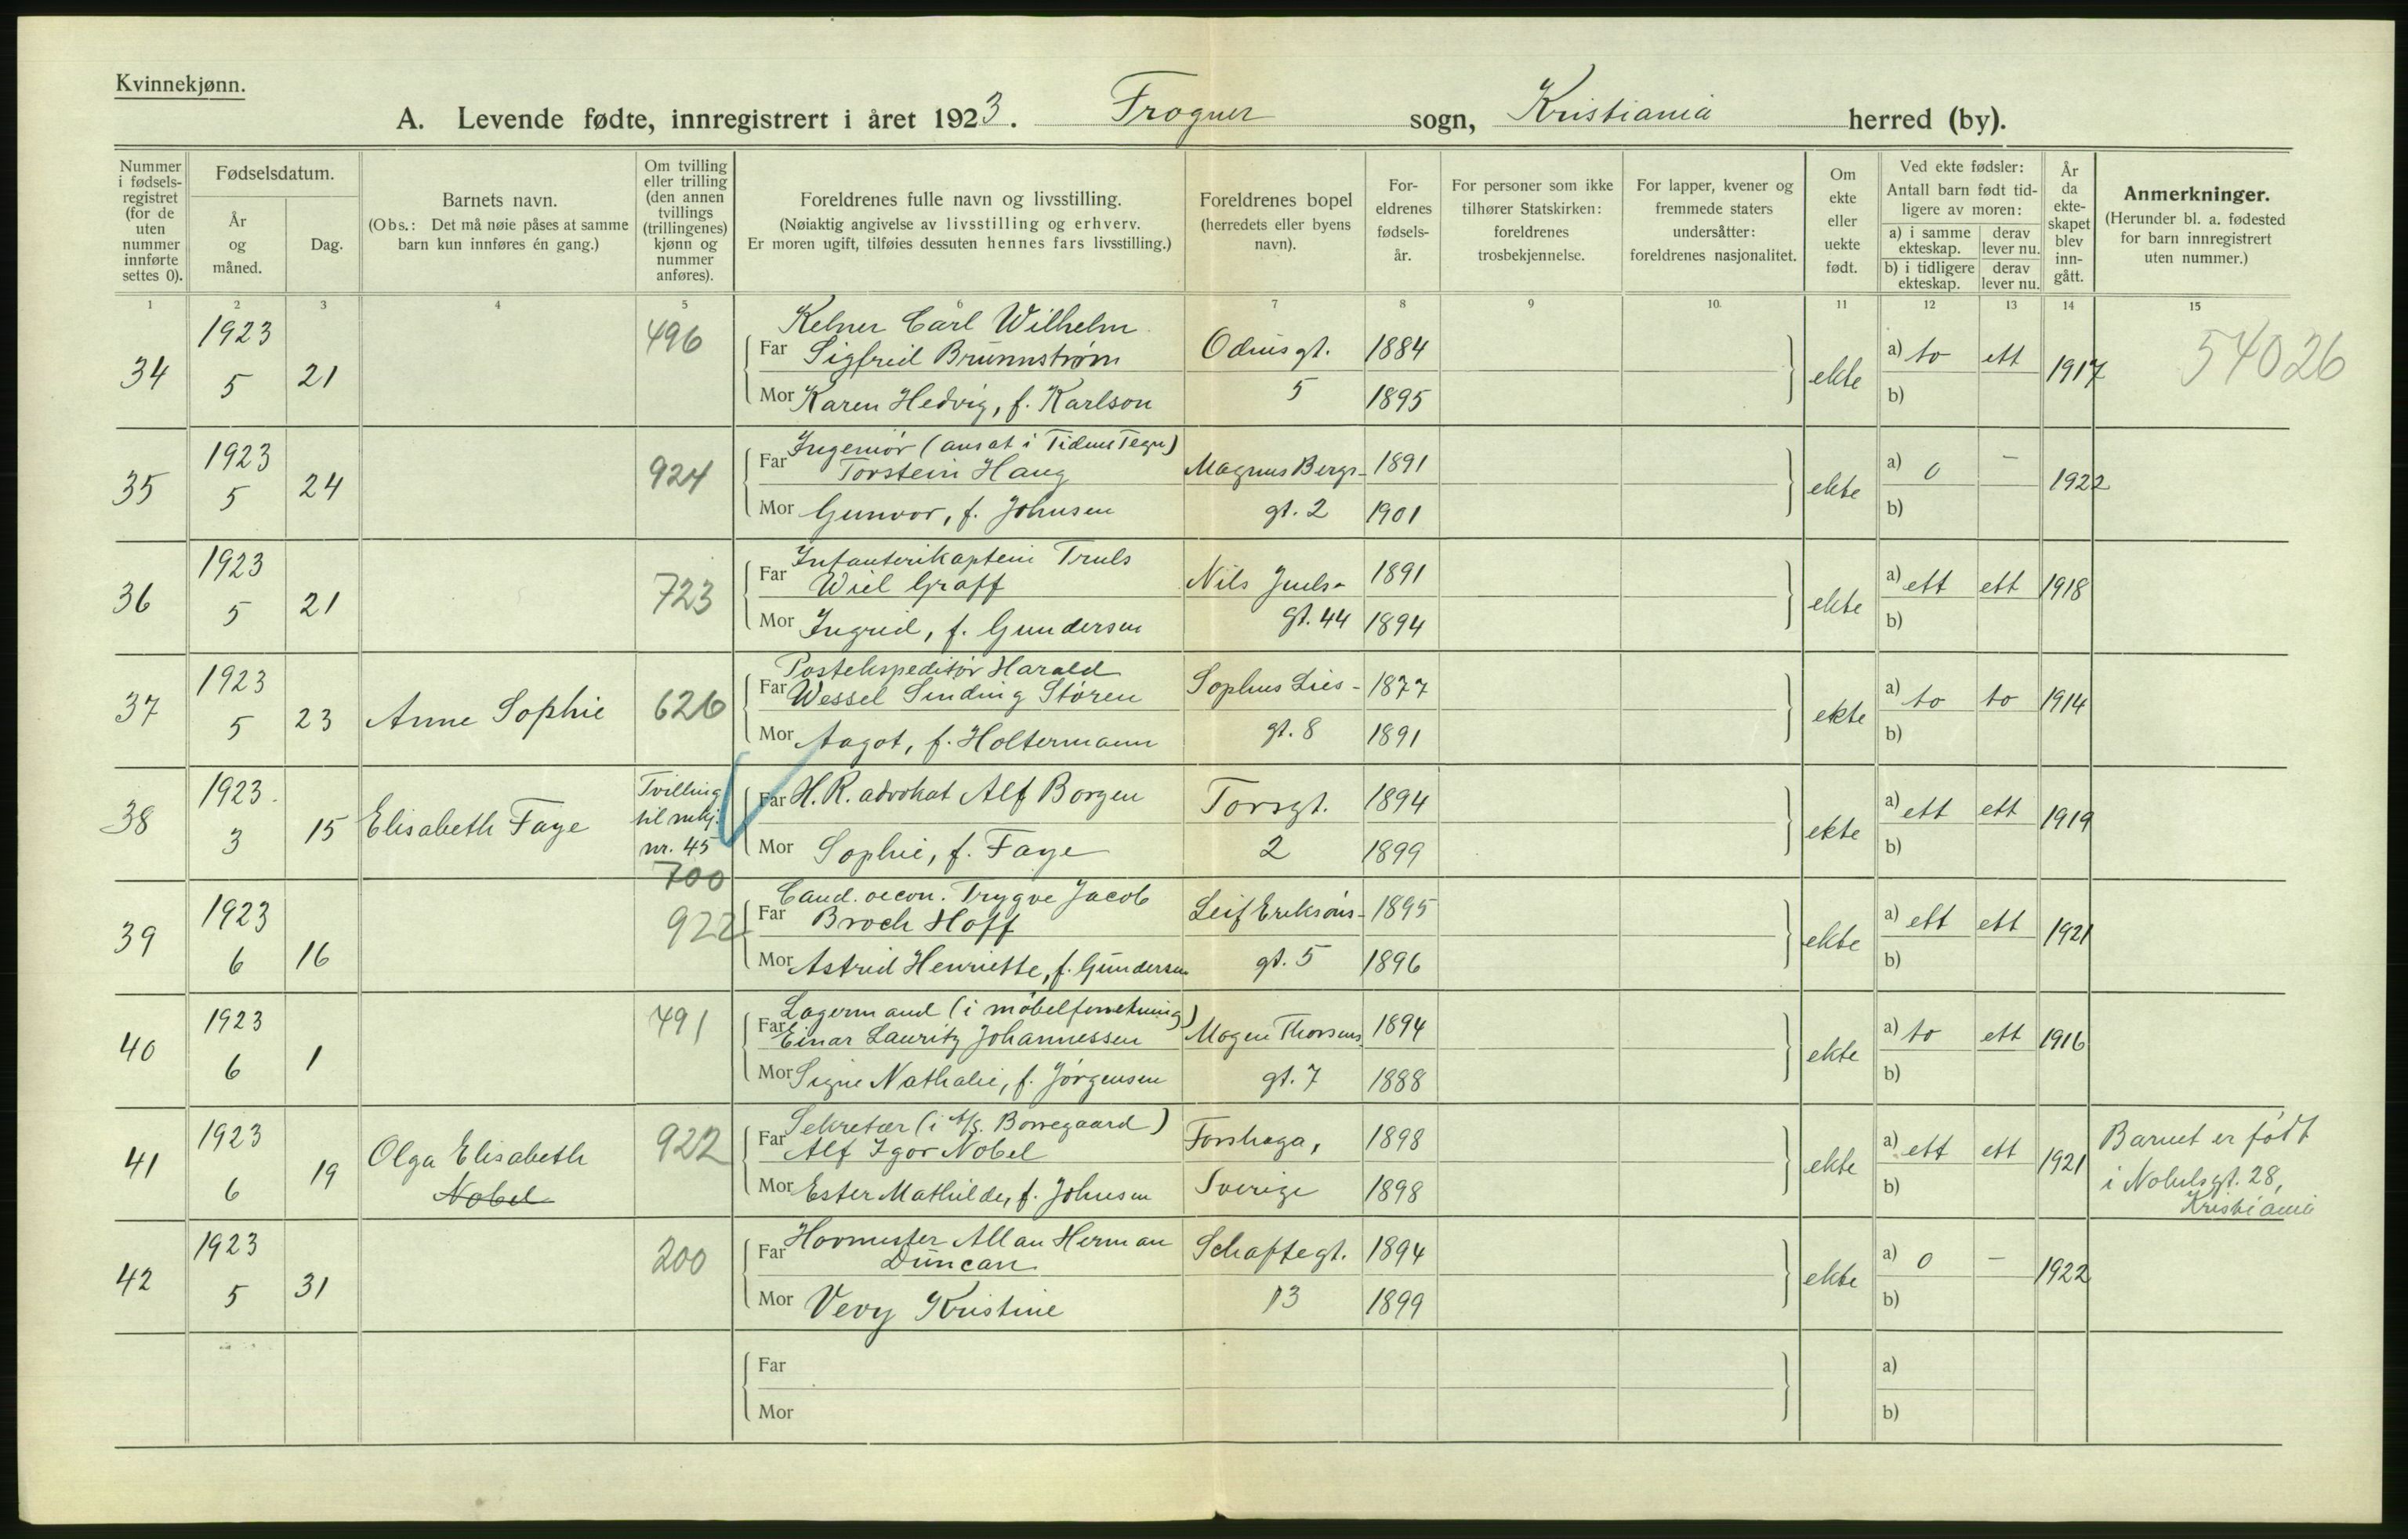 Kvinnekjønn.
A. Levende fødte, innregistrert i året 1923. Frogner sogn, Kristiania herred (by).
Nummer i fødselsregistret (for de uten nummer innførte settes 0).
Fødselsdatum.
År og måned.
Dag.
Barnets navn.
(Obs.: Det må nøie påses at samme barn kun innføres én gang.)
Om tvilling eller trilling (den annen tvillings (trillingenes) kjønn og nummer anføres).
Foreldrenes fulle navn og livsstilling.
(Nøiaktig angivelse av livsstilling og erhverv.
Er moren ugift, tilføies dessuten hennes fars livsstilling.)
Foreldrenes bopel (herredets eller byens navn).
Foreldrenes fødselsår.
For personer som ikke tilhører Statskirken: foreldrenes trosbekjennelse.
For lapper, kvener og fremmede staters undersåtter: foreldrenes nasjonalitet.
Om ekte eller uekte født.
Ved ekte fødsler:
Antall barn født tidligere av moren:
a) i samme ekteskap. derav lever nu.
b) i tidligere ekteskap. derav lever nu.
År da ekteskapet blev inngått.
Anmerkninger.
(Herunder bl. a. fødested for barn innregistrert uten nummer.)
1 2 3 4 5 6 7 8 9 10 11 12 13 14 15
34 1923 5 21 496 Far Kelner Carl Wilhelm
Sigfrid Brünnstrøm Odinsgt. 1884 ekte a) to ett 1917 54026
Mor Karen Hedvig, f. Karlson 5 1895 b)
35 1923 5 24 924 Far Ingeniør (ansat i Tidens Tegn)
Torstein Haug Magnus Bergs- 1891 ekte a) 0 – 1922
Mor Gunvor, f. Johnsen gt. 2 1901 b)
36 1923 5 21 723 Far Infanterikaptein Truls
Wiel Graff Nils Juels- 1891 ekte a) ett ett 1918
Mor Ingrid, f. Gundersen gt. 44 1894 b)
37 1923 5 23 Anne Sophie 626 Far Postekspeditør Harald
Wessel Sinding Støren Sophus Lies- 1877 ekte a) to to 1914
Mor Aagot, f. Holtermann gt. 8 1891 b)
38 1923. 3 15 Elisabeth Faye Tvilling til mkj. nr. 45 700 Far H. R. advokat Alf Borgen Torsgt. 1894 ekte a) ett ett 1919
Mor Sophie, f. Faye 2 1899 b)
39 1923 6 16 922 Far Cand. oecon. Trygve Jacob
Broch Hoff Leif Eriksøns- 1895 ekte a) ett ett 1921
Mor Astrid Henriette, f. Gündersen gt. 5 1896 b)
40 1923 6 1 491 Far Lagermand (i møbelforretning)
Einar Lauritz Johannessen Mogen Thorsens- 1894 ekte a) to ett 1916
Mor Signe Nathalie, f. Jørgensen gt. 7 1888 b)
41 1923 6 19 Olga Elisabeth Nobel 922 Far Sekretær (i A/S. Borregaard)
Alf Igor Nobel Forshaga, 1898 ekte a) ett ett 1921 Barnet er født
i Nobelsgt. 28,
Kristiania
Mor Ester Mathilde, f. Johnsen Sverige 1898 b)
42 1923 5 31 200 Far Hovmester Allan Herman
Düncan Schaftegt. 1894 ekte a) 0 – 1922
Mor Vevy Kristine 13 1899 b)
Far a)
Mor b)